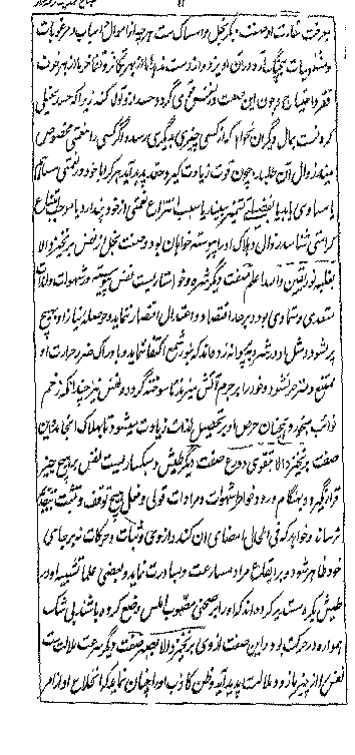 بهر خست حقارت اوست دیگر بخل و امساک ست هر چه از اموال و اسباب و مرغوبات
و مشتهیات بچنگ آورد در آن آویزد و از دست ندهد یا از بهر تکاثر و تفاخر یا از بهر خوف
فقر و احتیاج و چون این صفت در نفس قوی گردد حسد از و تولد کند زیرا که حسد بخیلی
کردنست بمال دیگران نخواهد که از کسی چیزی بدیگری رسد و اگر کسی را نعمتی مخصوص
بیند زوال آن طلبد و چون قوت زیادت گیرد حقد پدید آید هر کرا با خود در نعمتی مساهم
یا مساوی یابد یا بفضیلتی متمیز بیند یا سبب انتزاع نعمتی از خود پندارد یا موجب امتناع
کرامتی شناسد زوال و هلاک او را پیوسته خواهان بود و صفت بخل از نفس برنخیزد الا
بغلبه نور یقین والله اعلم صفت دیگر شره و خواستاریست نفس پیوسته در شهوات و لذات
متعدی و متمادی بود و بر حد اقتصاد و اعتدال اقتصار ننماید و حوصله نیاز او بهیچ
پر نشود و مثل او در شره به پروانه زده اند که بنور شمع اکتفا ننماید و با دراک ضرر حرارت او
ممتنع و منزجر نشود و خود را بر جرم آتش میزند تا سوخته گردد و نفس نیز چندانکه زخم
نوائب میخورد همچنان حرص او بر تحصیل لذات زیادت میشود تا بهلاک انجامد و این
صفت برنخیزد الا بتقوی و ورع صفت دیگر طیش و سبکساریست نفس بر هیچ چیز
قرار نگیرد و بهنگام ورود خواطر شهوات و مرادات قولی و فعلی هیچ توقف و تثبت
نرساند و خواهد که فی الحال امضای آن کند و از وی ثبات و حرکات نه بر جای
خود ظاهر شود و بر ایقاع مراد مسارعت و مبادرت نماید و بعضی علما تشبیه او در
طیش بکره مستدیر کرده اند که او را بر صحنی مصوب املس وضع کرده باشند بی شک
همواره در حرکت بود و این صفت از وی برنخیزد الا بصبر صفت دیگر سرعت ملالت ست
نفس را از چیزها زود ملالت پدید آید و ظن کاذب او را چنان نماید که انخلاع او از امر